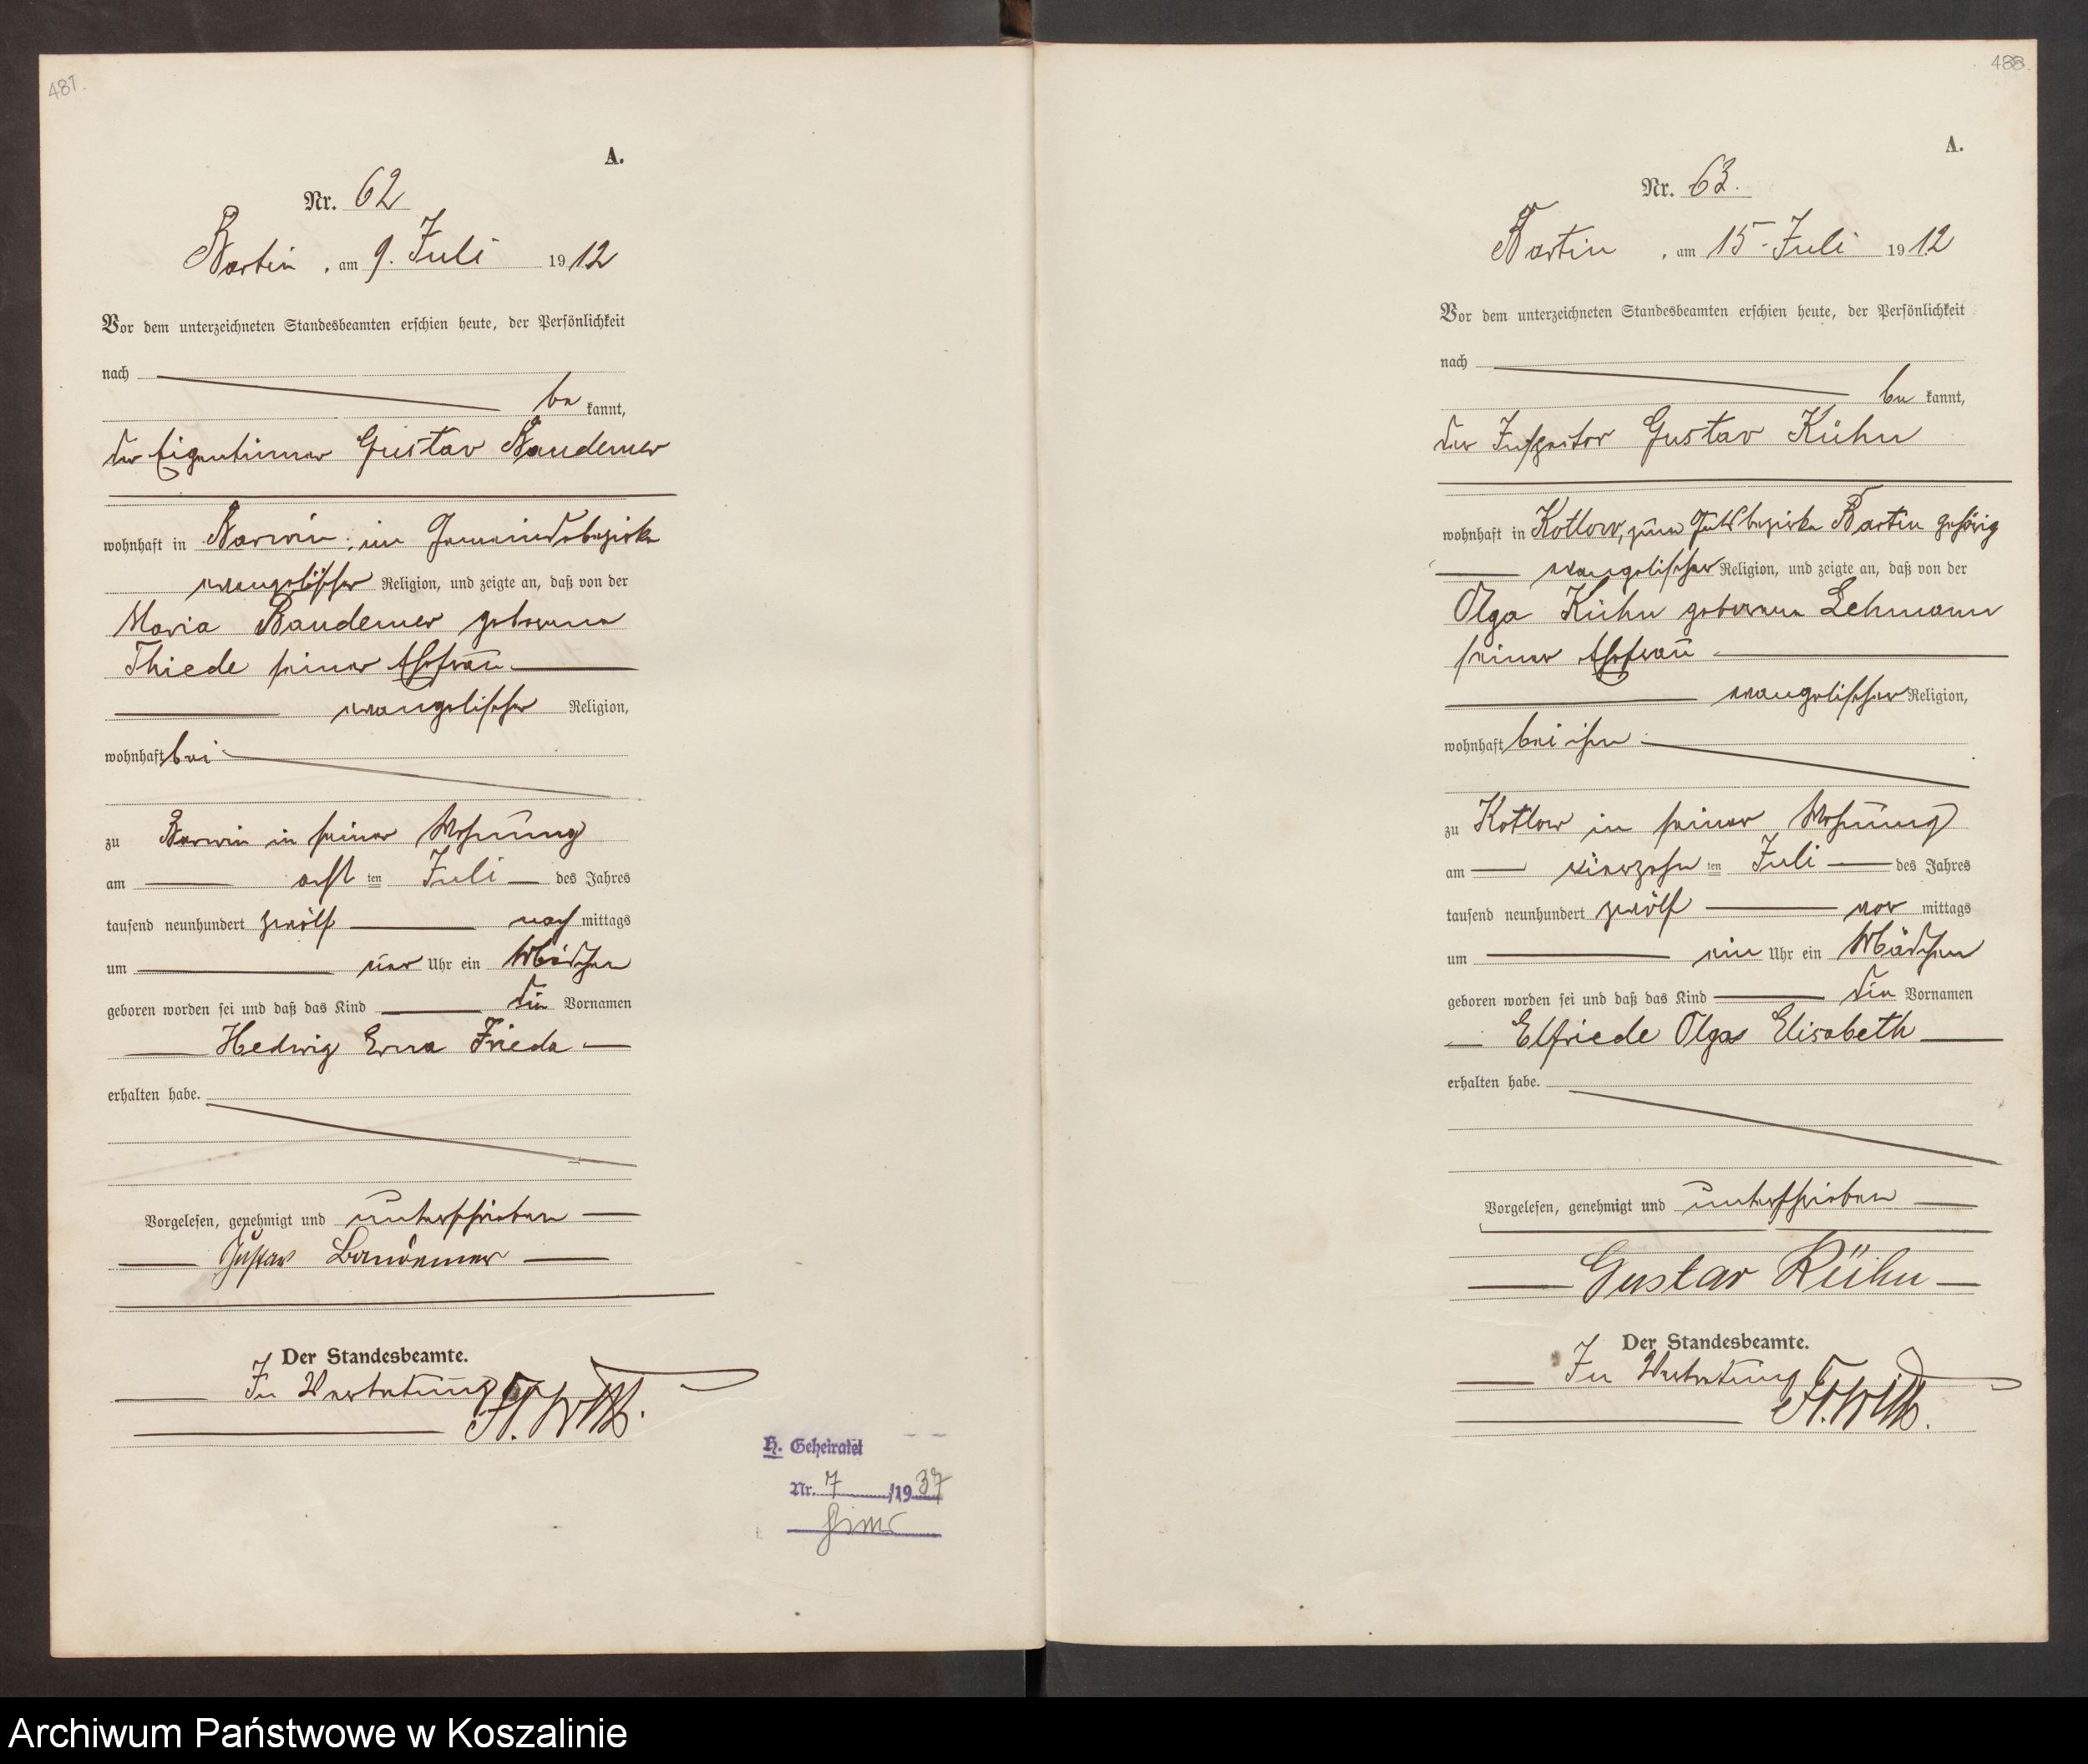 487.
A.
Nr. 62
Bartin, am 9. Juli 1912
Vor dem unterzeichneten Standesbeamten erschien heute, der Persönlichkeit
nach
be kannt,
der Eigentümer Gustav Bandemer
wohnhaft in Barwin, im Gemeindebezirke
evangelischer Religion, und zeigte an, daß von der
Maria Bandemer geborene
Thiede seiner Ehefrau
evangelischer Religion,
wohnhaft bei
zu Barwin in seiner Wohnung
am acht ten Juli des Jahres
tausend neunhundert zwölf nach mittags
um Uhr ein Mädchen
geboren worden sei und daß das Kind die Vornamen
Hedwig Erna Frieda
erhalten habe.
Vorgelesen, genehmigt und unterschrieben
Gustav Bandemer
Der Standesbeamte.
In Vertretung
H. Geheiratet
Nr. 7 /1937
488.
A.
Nr. 63.
Bartin, am 15. Juli 1912
Vor dem unterzeichneten Standesbeamten erschien heute, der Persönlichkeit
nach
be kannt,
der Inspektor Gustav Kühn
wohnhaft in Kotlow, zum Gutsbezirke Bartin gehörig
evangelischer Religion, und zeigte an, daß von der
Olga Kühn geborene Lehmann
seiner Ehefrau
evangelischer Religion,
wohnhaft bei ihm
zu Kotlow in seiner Wohnung
am vierzehn ten Juli des Jahres
tausend neunhundert zwölf vor mittags
um ein Uhr ein Mädchen
geboren worden sei und daß das Kind die Vornamen
Elfriede Olga Elisabeth
erhalten habe.
Vorgelesen, genehmigt und unterschrieben
Gustav Kühn
Der Standesbeamte.
In Vertretung
Archiwum Państwowe w Koszalinie